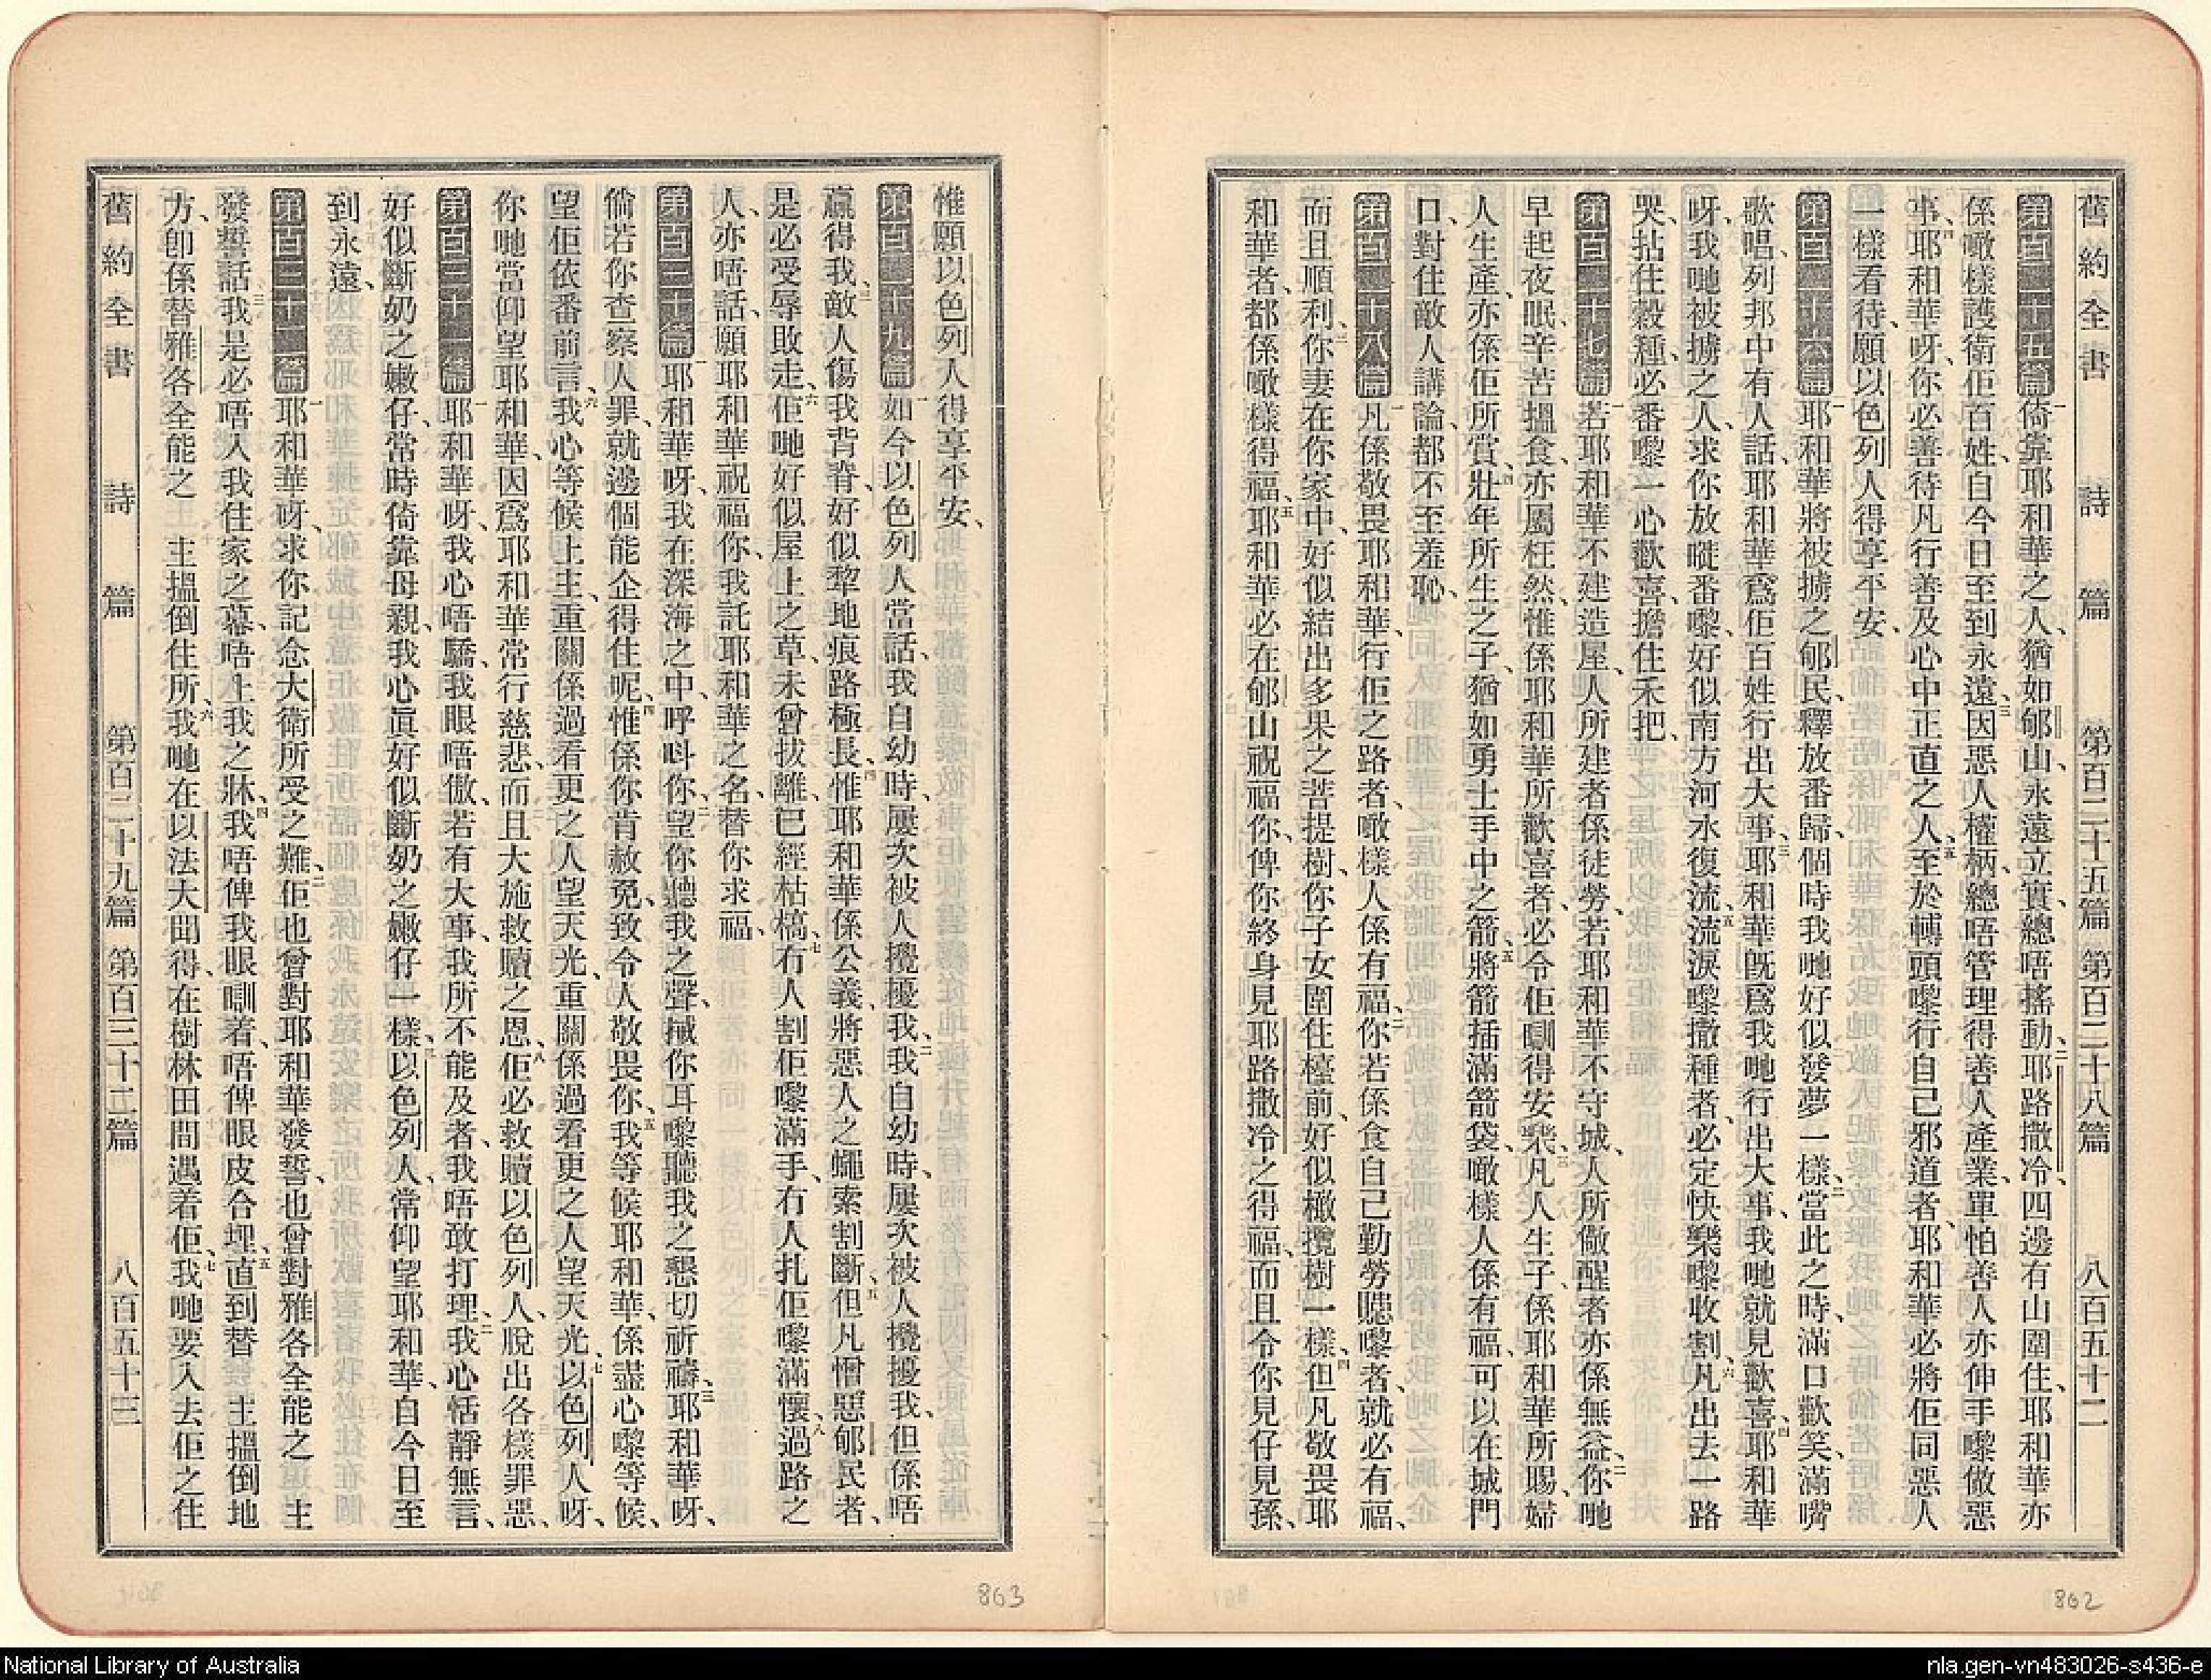 舊約全書 詩篇 第百二十五篇 第百二十八篇 八百五十二
第百二十五篇 一倚靠耶和華之人、猶如郇山、永遠立實、總唔搖動、二耶路撒冷四邊有山圍住、耶和華亦
係噉樣護衛佢百姓、自今日至到永遠、三因惡人權柄、總唔管理得善人產業、單怕善人亦伸手嚟做惡
事、四耶和華呀、你必善待凡行善及心中正直之人、五至於轉頭嚟行自己邪道者、耶和華必將佢同惡人
一樣看待、願以色列人得享平安、
第百二十六篇 一耶和華將被擄之郇民、釋放番歸、個時我哋好似發夢一樣、二當此之時、滿口歡笑、滿嘴
歌唱、列邦中有人話、耶和華爲佢百姓行出大事、三耶和華既爲我哋行出大事、我哋就見歡喜、四耶和華
呀、我哋被擄之人、求你放嘥番嚟、好似南方河水復流、五流淚嚟撒種者、必定快樂嚟收割、六凡出去一路
哭、拈住穀種、必番嚟一心歡喜、擔住禾把、
第百二十七篇 一若耶和華不建造屋、人所建者係徒勞、若耶和華不守城、人所儆醒者亦係無益、二你哋
早起夜眠、辛苦搵食、亦屬枉然、惟係耶和華所歡喜者、必令佢瞓得安樂、三凡人生子、係耶和華所賜、婦
人生產、亦係佢所賞、四壯年所生之子、猶如勇士手中之箭、五將箭插滿箭袋、噉樣人係有福、可以在城門
口、對住敵人講論、都不至羞恥、
第百二十八篇 一凡係敬畏耶和華、行佢之路者、噉樣人係有福、二你若係食自己勤勞聽嚟者、就必有福、
而且順利、三你妻在你家中、好似結出多果之菩提樹、你子女圍住檯前、好似橄欖樹一樣、四但凡敬畏耶
和華者、都係噉樣得福、五耶和華必在郇山祝福你、俾你終身見耶路撒冷之得福、而且令你見仔見孫、
惟願以色列人得享平安、
第百二十九篇 一如今以色列人當話、我自幼時、屢次被人攪擾我、二我自幼時、屢次被人攪擾我、但係唔
贏得我、三敵人傷我背脊、好似犂地痕路極長、四惟耶和華係公義、將惡人之繩索割斷、五但凡憎惡郇民者、
是必受辱敗走、六佢哋好似屋上之草、未曾拔離、已經枯槁、七冇人割佢嚟滿手、冇人扎佢嚟滿懷、八過路之
人、亦唔話、願耶和華祝福你、我託耶和華之名、替你求福、
第百三十篇 一耶和華呀、我在深海之中、呼呌你、二望你聽我之聲、摵你耳嚟聽我之懇切祈禱、三耶和華呀、
倘若你查察人罪、就邊個能企得住呢、四惟係你肯赦免、致令人敬畏你、五我等候耶和華、係盡心嚟等候、
望佢依番前言、六我心等候上主、重關係過看更之人望天光、重關係過看更之人望天光、七以色列人呀、
你哋當仰望耶和華、因爲耶和華常行慈悲、而且大施救贖之恩、八佢必救贖以色列人、脫出各樣罪惡、
第百三十一篇 一耶和華呀、我心唔驕、我眼唔傲、若有大事、我所不能及者、我唔敢打理、二我心恬靜無言、
好似斷奶之嫩仔、當時倚靠母親、我心眞好似斷奶之嫩仔一樣、三以色列人、常仰望耶和華、自今日至
到永遠、
第百三十二篇 一耶和華呀、求你記念大衛所受之難、二佢也曾對耶和華發誓、也曾對雅各全能之 主
發誓話、三我是必唔入我住家之幕、唔上我之牀、四我唔俾我眼瞓着、唔俾眼皮合埋、五直到替 主搵倒地
方、卽係替雅各全能之 主搵倒住所、六我哋在以法大聞得、在樹林田間遇着佢、七我哋要入去佢之住
舊約全書 詩篇 第百二十九篇 第百三十二篇 八百五十三
863
862
National Library of Australia
nla.gen-vn483026-s436-e